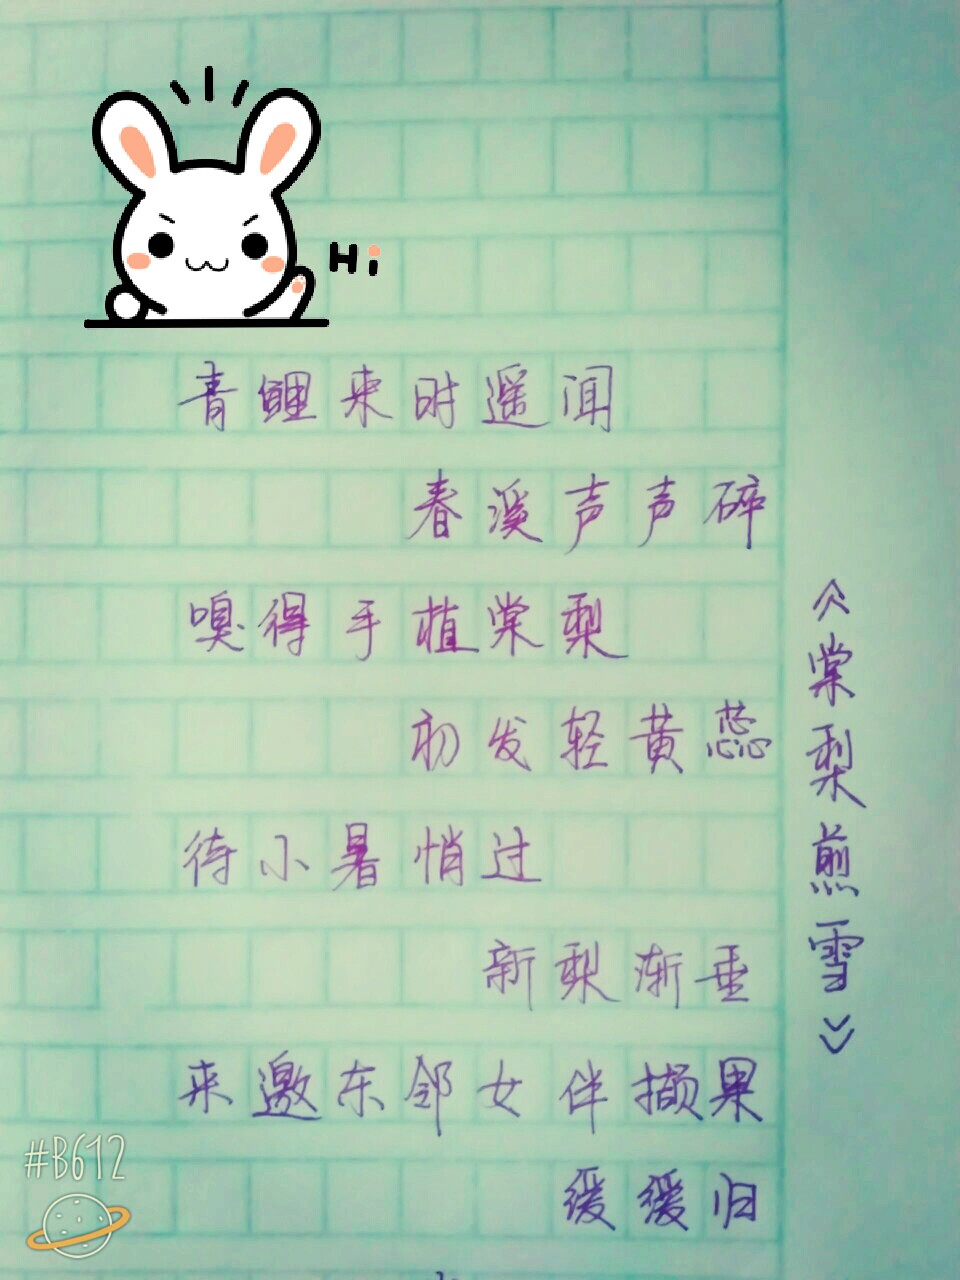 Hi
青鲤来时遥闻
春溪声声碎
嗅得手植棠梨
初发轻黄蕊
待小暑悄过
新梨渐垂
来邀东邻女伴撷果
缓缓归
《棠梨煎雪》
#B612